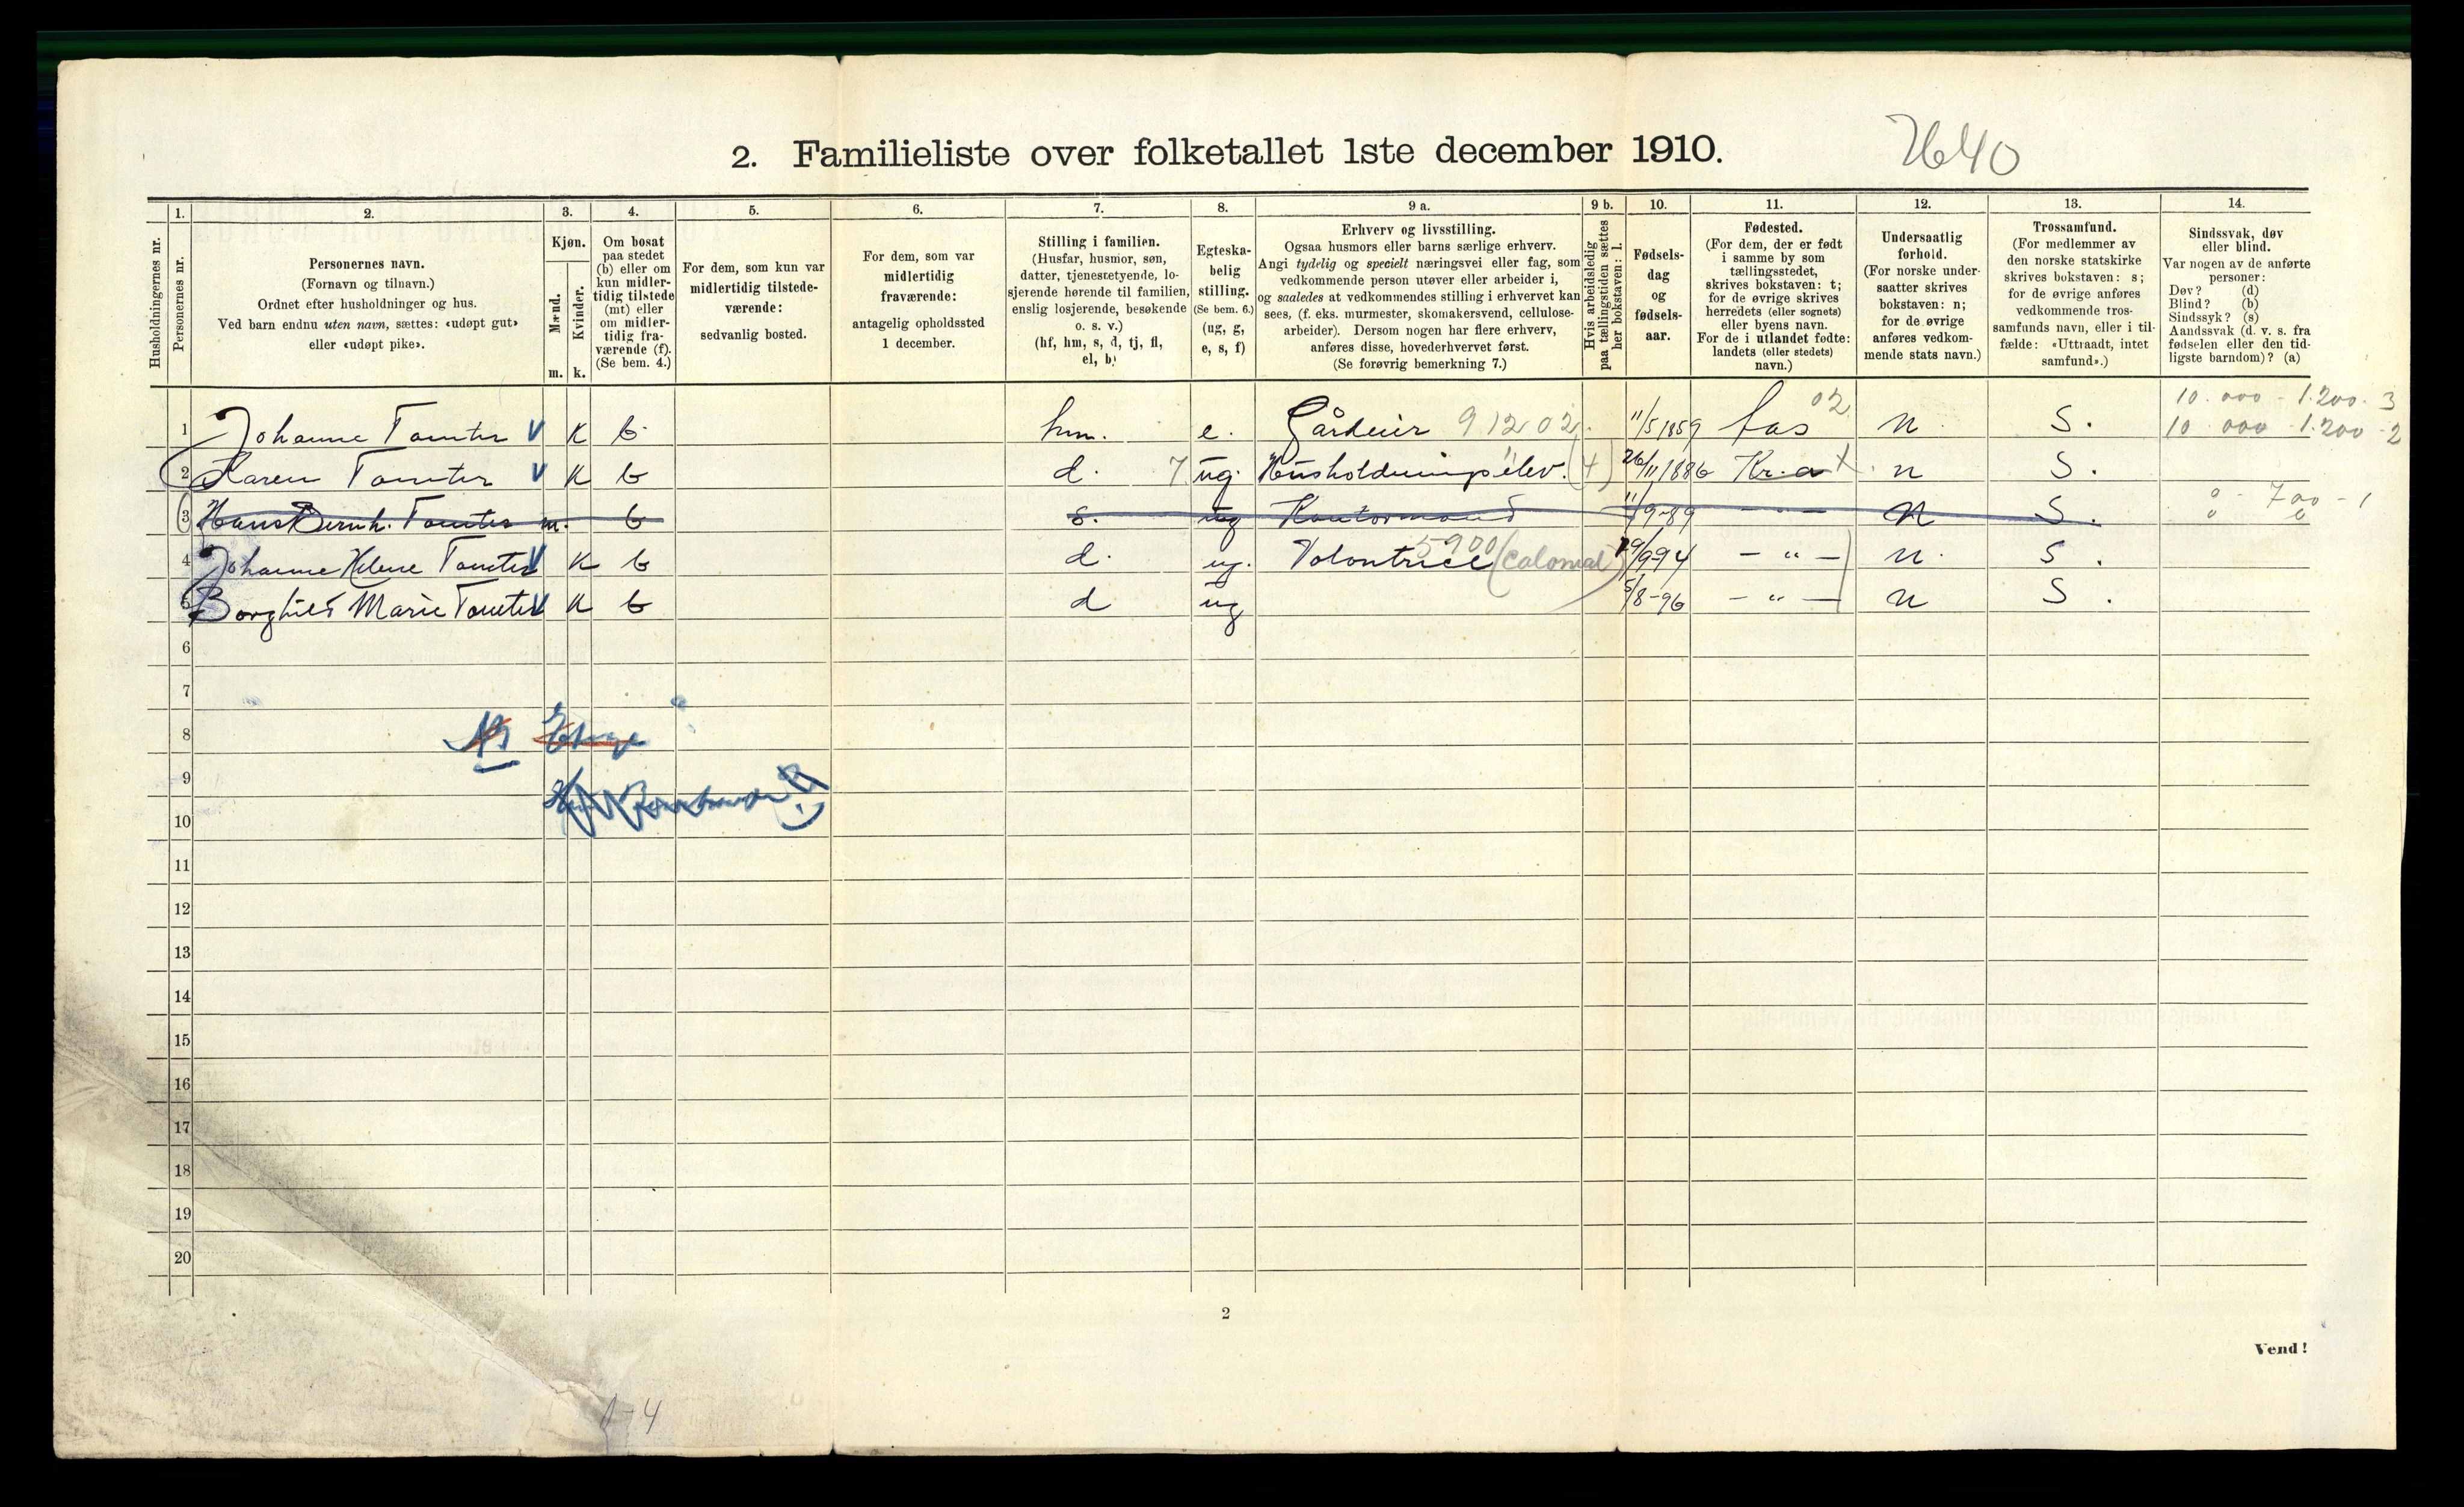 2. Familieliste over folketallet 1ste december 1910.
2640
1. 2. 3. 4. 5. 6. 7. 8. 9 a. 9 b. 10. 11. 12. 13. 14.
Husholdningernes nr.
Personernes nr.
Personernes navn.
(Fornavn og tilnavn.)
Ordnet efter husholdninger og hus.
Ved barn endnu uten navn, sættes: «udøpt gut»
eller «udøpt pike».
Kjøn.
Mænd.
Kvinder.
m. k.
Om bosat
paa stedet
(b) eller om
kun midler-
tidig tilstede
(mt) eller
om midler-
tidig fra-
værende (f).
(Se bem. 4.)
For dem, som kun var
midlertidig tilstede-
værende:
sedvanlig bosted.
For dem, som var
midlertidig
fraværende:
antagelig opholdssted
1 december.
Stilling i familien.
(Husfar, husmor, søn,
datter, tjenestetyende, lo-
sjerende hørende til familien,
enslig losjerende, besøkende
o. s. v.)
(hf, hm, s, d, tj, fl,
el, b)
Egteska-
belig
stilling.
(Se bem. 6.)
(ug, g,
e, s, f)
Erhverv og livsstilling.
Ogsaa husmors eller barns særlige erhverv.
Angi tydelig og specielt næringsvei eller fag, som
vedkommende person utøver eller arbeider i,
og saaledes at vedkommendes stilling i erhvervet kan
sees, (f. eks. murmester, skomakersvend, cellulose-
arbeider). Dersom nogen har flere erhverv,
anføres disse, hovederhvervet først.
(Se forøvrig bemerkning 7.)
Hvis arbeidsledig
paa tællingstiden sættes
her bokstaven: l.
Fødsels-
dag
og
fødsels-
aar.
Fødested.
(For dem, der er født
i samme by som
tællingsstedet,
skrives bokstaven: t;
for de øvrige skrives
herredets (eller sognets)
eller byens navn.
For de i utlandet fødte:
landets (eller stedets)
navn.)
Undersaatlig
forhold.
(For norske under-
saatter skrives
bokstaven: n;
for de øvrige
anføres vedkom-
mende stats navn.)
Trossamfund.
(For medlemmer av
den norske statskirke
skrives bokstaven: s;
for de øvrige anføres
vedkommende tros-
samfunds navn, eller i til-
fælde: «Uttraadt, intet
samfund».)
Sindssvak, døv
eller blind.
Var nogen av de anførte
personer:
Døv? (d)
Blind? (b)
Sindssyk? (s)
Aandssvak (d. v. s. fra
fødselen eller den tid-
ligste barndom)? (a)
02 10.000 - 1.200. 3
1 Johanne Tomter V K b. hm. e. Gårdeier 9 12 02. 11/5 1859 n S. 10 000 1.200 - 2
2 Karen Tomter V K b d. 7 ug. Husholdningselev. (4) 26/11 1886 Kr.a t. n S.
3 Hans Bernh. Tomter m. b s. ug Kontormand 9-89 - " - n S. 0 - 700 - 1
4 Johanne Helene Tomter V K b d. ug. Volontrice 5900 (Colonial) 9-94 - " - n. S.
5 Borghild Marie Tomter V K b d ug 5/8-96 - " - n S.
6
7
8
9
10
11
12
13
14
15
16
17
18
19
20
2
Vend!
0-4